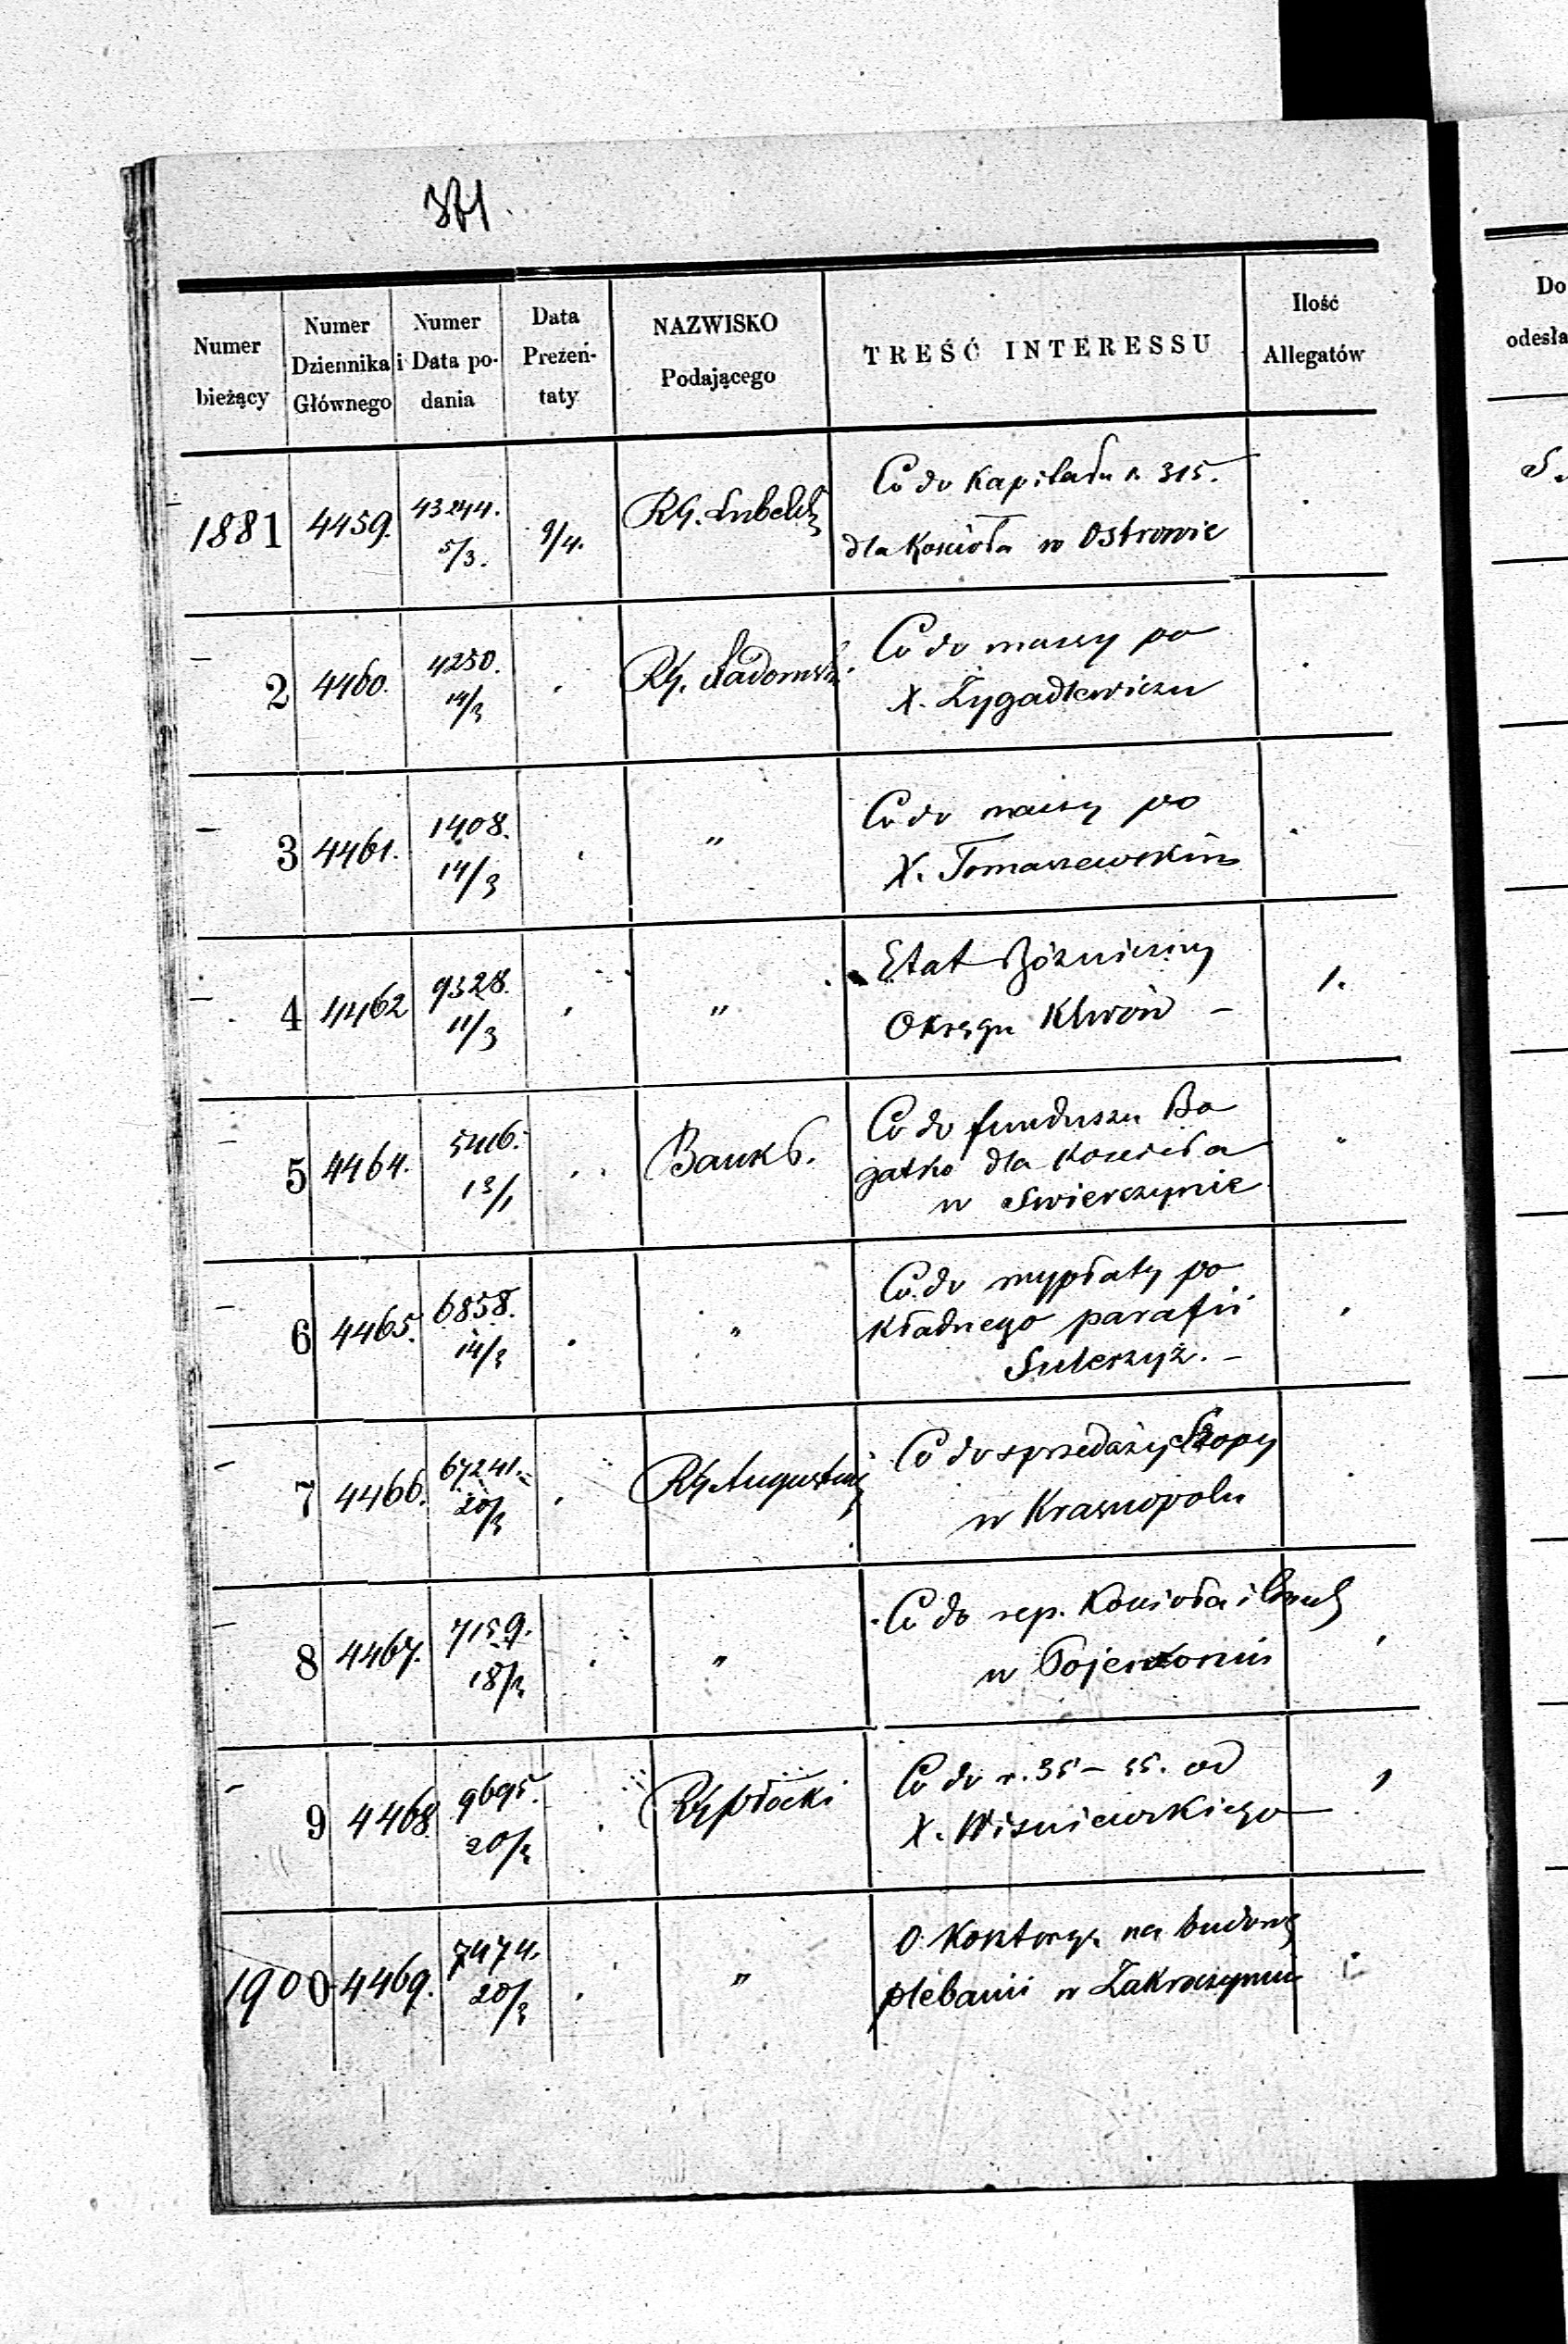 Numer bieżący
Numer Dziennika Głównego
Numer i Data podania
Data Prezeńtaty
NAZWISKO Podającego
TREŚĆ INTERESSU
Ilość Allegatów
1881 4459. 43244. 5/3. 9/4. RG. Lubelski Co do Kapitału r. 315.
dla Kościoła w Ostrowie
2 4460. 4250. 14/3 RG. Radomski Co do massy po
X. Zygadlewiczu
3 4461. 1408. 14/3 " Co do massy po
X. Tomaszewskim
4 4462 9328. 11/3 " Etat Bóżniczny 1.
Okręgu Klwów –
5 4464. 5416. 13/1 Bank P. Co do funduszu Bo
gatko dla Kościoła
w Swierczynie
6 4465. 6858. 14/3 " Co do wypłaty po
kładnego parafii
Sulerzyż. –
7 4466. 67241. 20/3 RG Augustows Co do sprzedaży Szopy
w Krasnopolu
8 4467. 7159. 18/3 " Co do rep. Kościoła i
w Pojewoniu
9 4468. 9695. 20/3 RG Płocki Co do r. 35 – 55. od
X. Wisniewskiego
1900 4469. 7474. 20/3 " O na budowę
plebanii w Zakroczymiu
Do
odesła